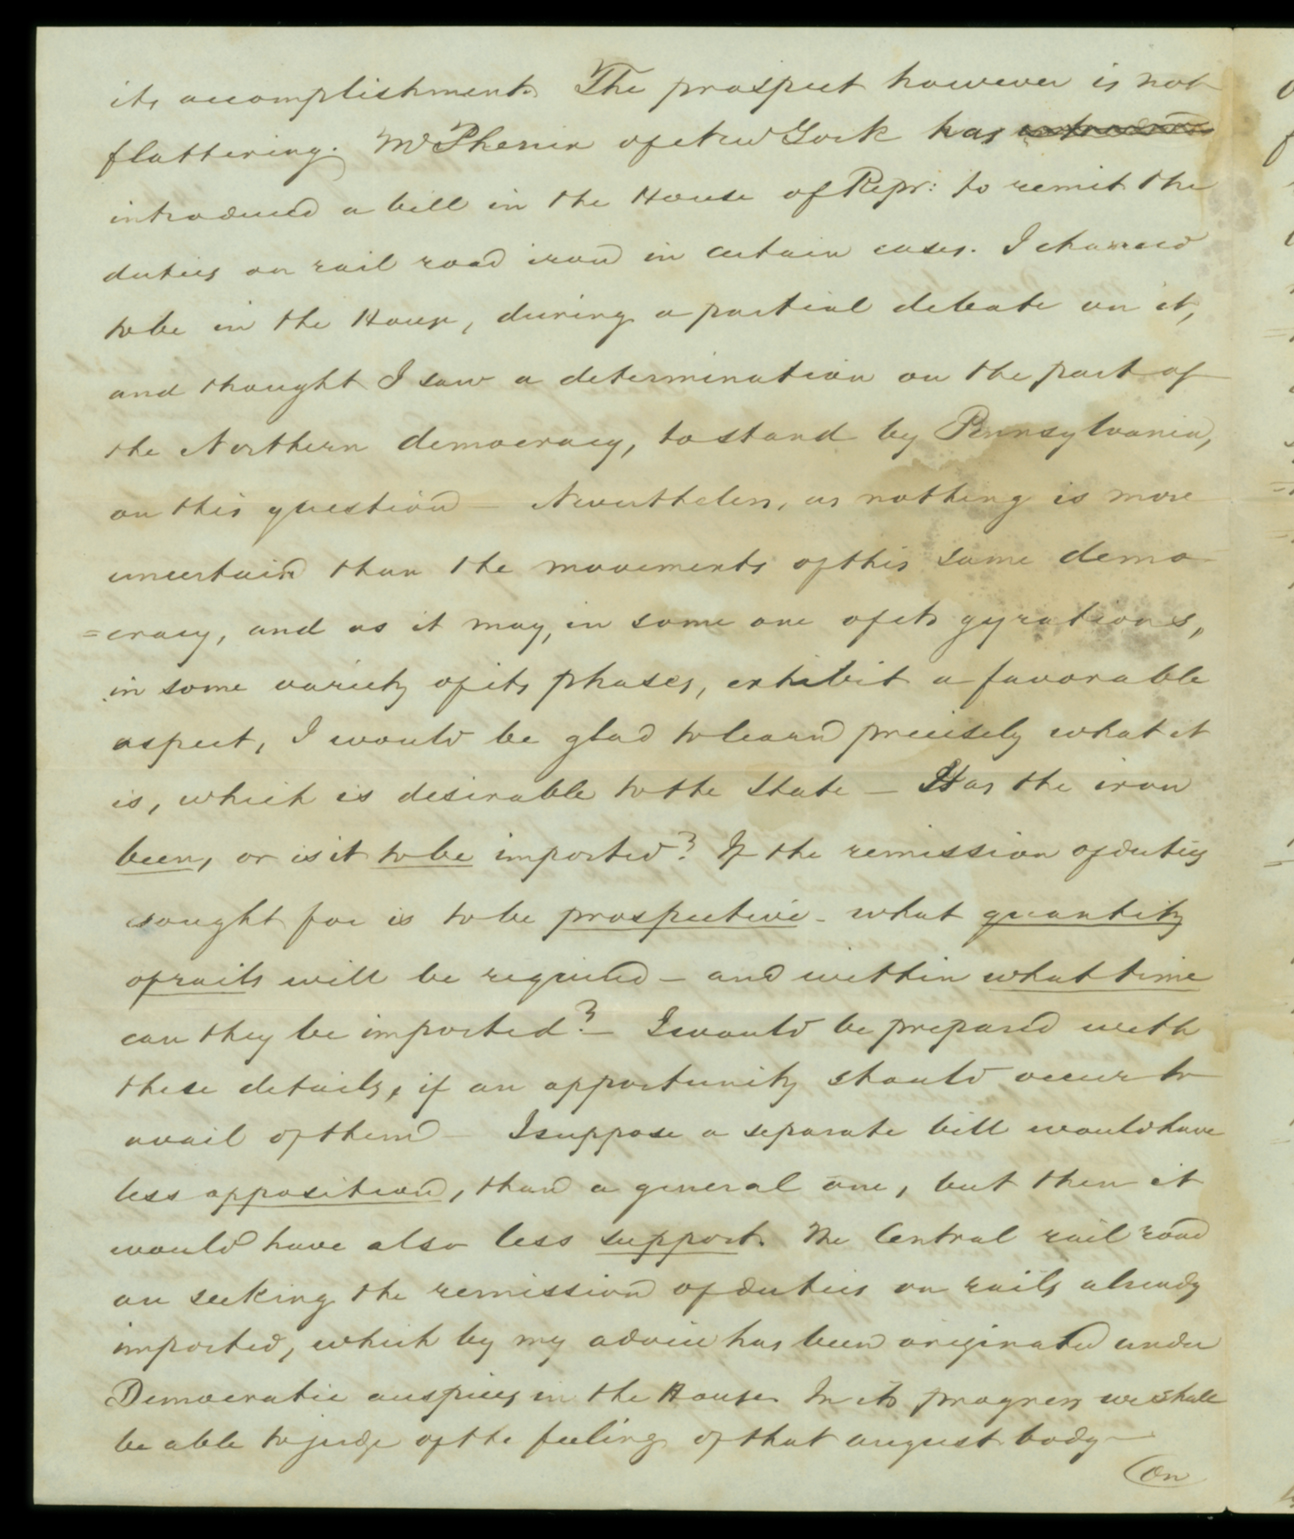 its accomplishment. The prospect however is not
flattering. Mr Phenix of New York has
introduced a bill in the House of Repr: to remit the
duties on rail road iron in certain cases. I chanced
to be in the House, during a partial debate on it,
and thought I saw a determination on the part of
the Northern democracy, to stand by Pennsylvania,
on this question — Nevertheless, as nothing is more
uncertain than the movements of this same demo
=cracy, and as it may, in some one of its gyrations,
in some variety of its phases, exhibit a favorable
aspect, I would be glad to learn precisely what it
is, which is desirable to the State — Has the iron
been, or is it to be imported? If the remission of duties
sought for is to be prospective - what quantity
of rails will be required — and within what time
can they be imported? — I would be prepared with
these details, if an opportunity should occur to
avail of them — I suppose a separate bill would have
less opposition, than a general one, but then it
would have also less support. The Central rail road
are seeking the remission of duties on rails already
imported, which by my advice has been originated under
Democratic auspices in the House. In its progress we shall
be able to judge of the feeling of that august body —
On